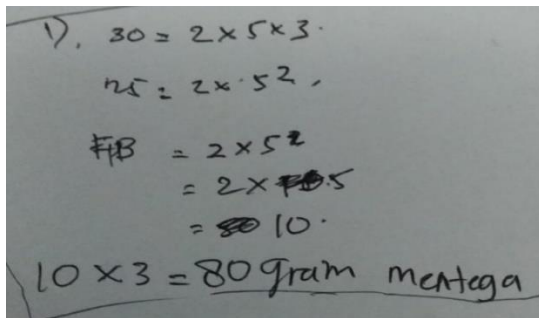 1). 30 = 2 × 5 × 3.
25 = 2 × 5²,
FPB = 2 × 5²
= 2 × 5
= 10.
10 × 3 = 80 gram mentega